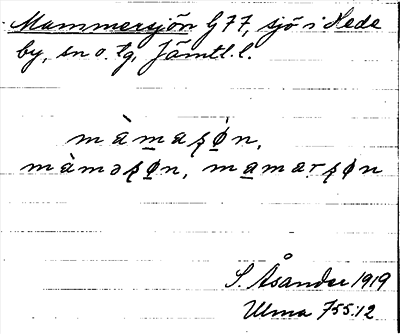 Mammersjön G77, sjö i Hede
by, sn o. tg, Jämtl. l.
màmaʂø̀n,
màməʂøn, mamarʂøn
S. Åsander 1919
Ulma 755:12